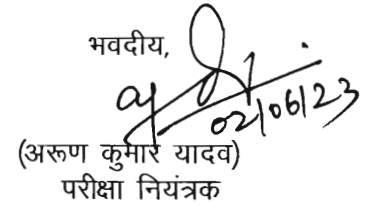 भवदीय,
02/06/23
(अरूण कुमार यादव)
परीक्षा नियंत्रक